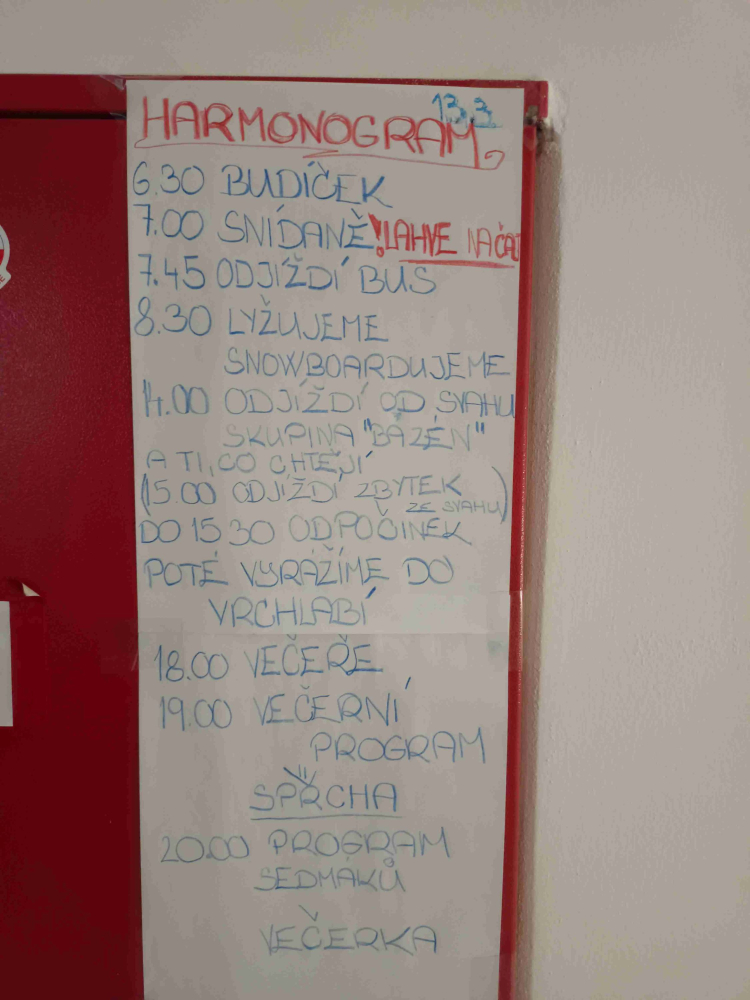 13.3.
HARMONOGRAM
6.30 BUDÍČEK
7.00 SNÍDANĚ !LAHVE NA ČAJ
7.45 ODJÍŽDÍ BUS
8.30 LYŽUJEME
SNOWBOARDUJEME
14.00 ODJÍŽDÍ OD SVAHU
SKUPINA "BAZÉN"
A TI, CO CHTĚJÍ
(15.00 ODJÍŽDÍ ZBYTEK
ZE SVAHU)
DO 15 30 ODPOČINEK
POTÉ VYRÁŽÍME DO
VRCHLABÍ
18.00 VEČEŘE
19.00 VEČERNÍ
PROGRAM
SPRCHA
20.00 PROGRAM
SEDMÁKŮ
VEČERKA